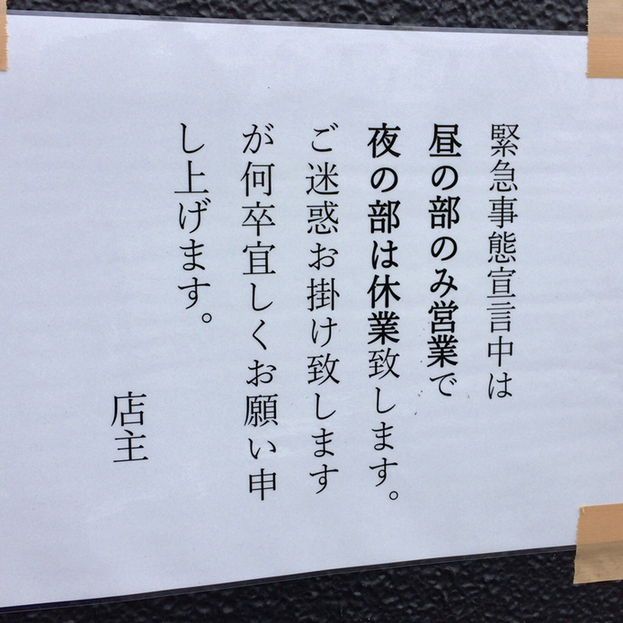 緊急事態宣言中は
昼の部のみ営業で
夜の部は休業致します。
ご迷惑お掛け致します
が何卒宜しくお願い申
し上げます。
店主